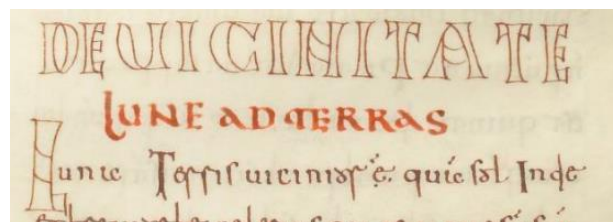 DE UICINITATE
LUNE AD TERRAS
Lunıe Terris uicinior ē. quā sol. Inde